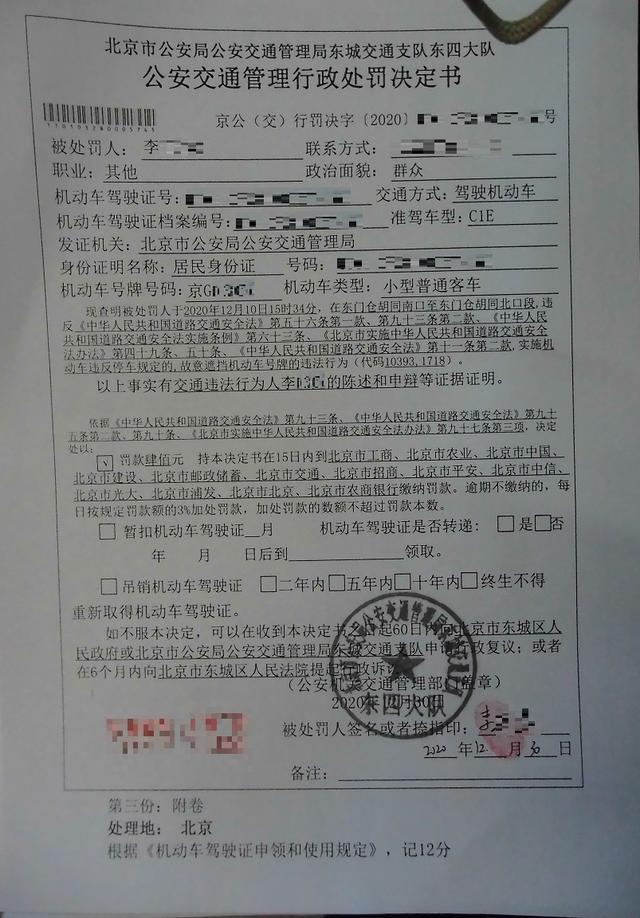 北京市公安局公安交通管理局东城交通支队东四大队
公安交通管理行政处罚决定书
京公（交）行罚决字〔2020〕 号
1101012800005741
被处罚人：李 联系方式：
职业：其他 政治面貌：群众
机动车驾驶证号： 交通方式：驾驶机动车
机动车驾驶证档案编号： 准驾车型：C1E
发证机关：北京市公安局公安交通管理局
身份证明名称：居民身份证 号码：
机动车号牌号码：京G 机动车类型：小型普通客车
现查明被处罚人于2020年12月10日15时34分，在东门仓胡同南口至东门仓胡同北口段，违
反《中华人民共和国道路交通安全法》第五十六条第一款、第九十三条第二款、《中华人
民共和国道路交通安全法实施条例》第六十三条、《北京市实施中华人民共和国道路交通安全
法办法》第四十九条、五十条、《中华人民共和国道路交通安全法》第十一条第二款，实施机
动车违反停车规定的，故意遮挡机动车号牌的违法行为（代码10393,1718）。
以上事实有交通违法行为人李 的陈述和申辩等证据证明。
依据《中华人民共和国道路交通安全法》第九十三条、《中华人民共和国道路交通安全法》第九十
五条第二款、第九十条、《北京市实施中华人民共和国道路交通安全法办法》第九十七条第三项，决定
处以：
√ 罚款肆佰元 持本决定书在15日内到北京市工商、北京市农业、北京市中国、
北京市建设、北京市邮政储蓄、北京市交通、北京市招商、北京市平安、北京市中信、
北京市光大、北京市浦发、北京市北京、北京市农商银行缴纳罚款。逾期不缴纳的，每
日按规定罚款额的3%加处罚款，加处罚款的数额不超过罚款本数。
□ 暂扣机动车驾驶证 月 机动车驾驶证是否转递：□是□否
年 月 日后到 领取。
□吊销机动车驾驶证 □二年内□五年内□十年内□终生不得
重新取得机动车驾驶证。
如不服本决定，可以在收到本决定书之日起60日内向北京市东城区人
民政府或北京市公安局公安交通管理局东城交通支队申请行政复议；或者
在6个月内向北京市东城区人民法院提起行政诉讼。
（公安机关交通管理部门盖章）
2020年12月30日
东四大队
被处罚人签名或者捺指印：李
2020 年 12 月 30 日
备注：
第三份：附卷
处理地： 北京
根据《机动车驾驶证申领和使用规定》，记12分